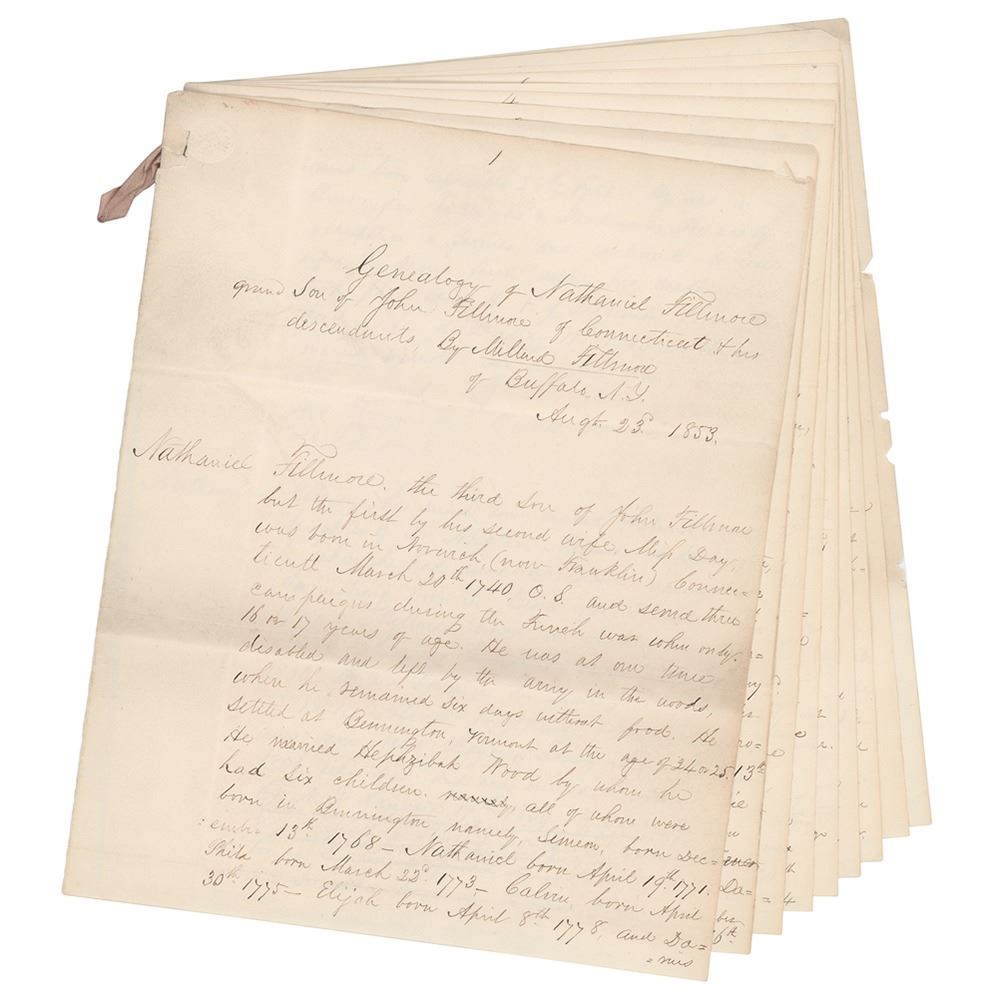 1
Genealogy of Nathaniel Fillmore
grand Son of John Fillmore of Connecticut & his
descendants, By Millard Fillmore
of Buffalo, N.Y.
Augt. 23d. 1853.
Nathaniel Fillmore, the third son of John Fillmore
but the first by his second wife, Miss Day,
was born in Norwich, (now Franklin) Connec=
ticutt March 20th 1740, O.S. and served three
campaigns during the French war when only
16 or 17 years of age. He was at one time
disabled and left by the army in the woods,
where he remained six days without food. He
settled at Bennington, Vermont at the age of 24 or 25.
He married Hephzibah Wood by whom he
had six children, all of whom were
born in Bennington, namely, Simeon, born Dec=
embr 13th 1768 – Nathaniel born April 19th. 1771. Da=
Phila born March 22d. 1773 – Calvin, born April
30th 1775 – Elijah born April 8th 1778, and Da=
=rius